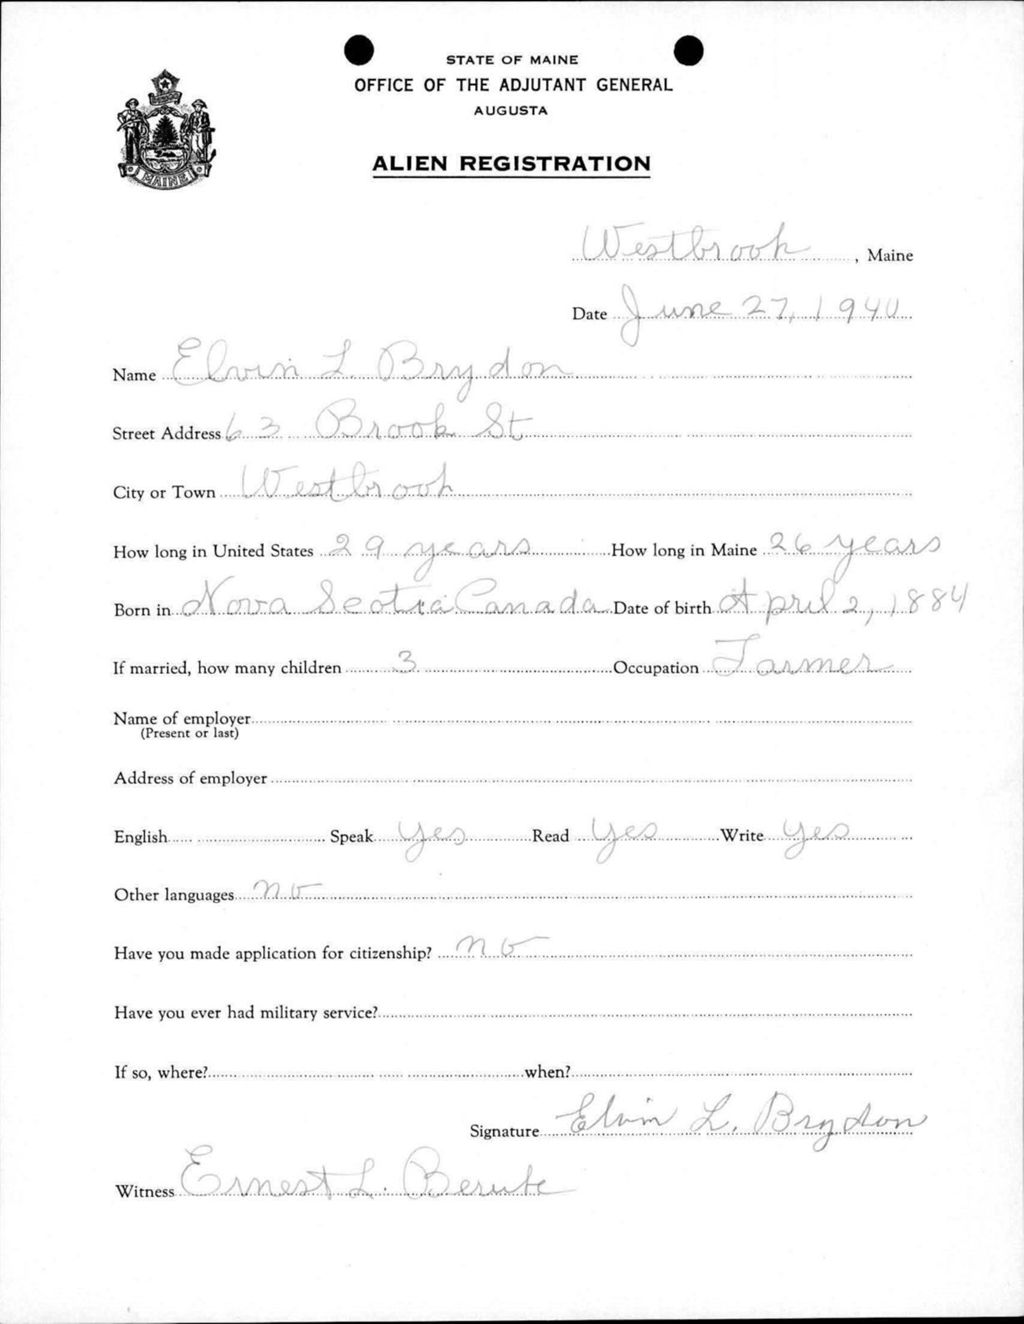 STATE OF MAINE
OFFICE OF THE ADJUTANT GENERAL
AUGUSTA
MAINE
ALIEN REGISTRATION
Westbrook, Maine
Date June 27, 1940
Name Elvin L. Brydon
Street Address 63 Brook St
City or Town Westbrook
How long in United States 29 years How long in Maine 26 years
Born in Nova Scotia Canada Date of birth April 2, 1884
If married, how many children 3 Occupation Farmer
Name of employer
(Present or last)
Address of employer
English Speak Yes Read Yes Write Yes
Other languages no
Have you made application for citizenship? no
Have you ever had military service?
If so, where? when?
Signature Elvin L. Brydon
Witness Ernest L. Berube